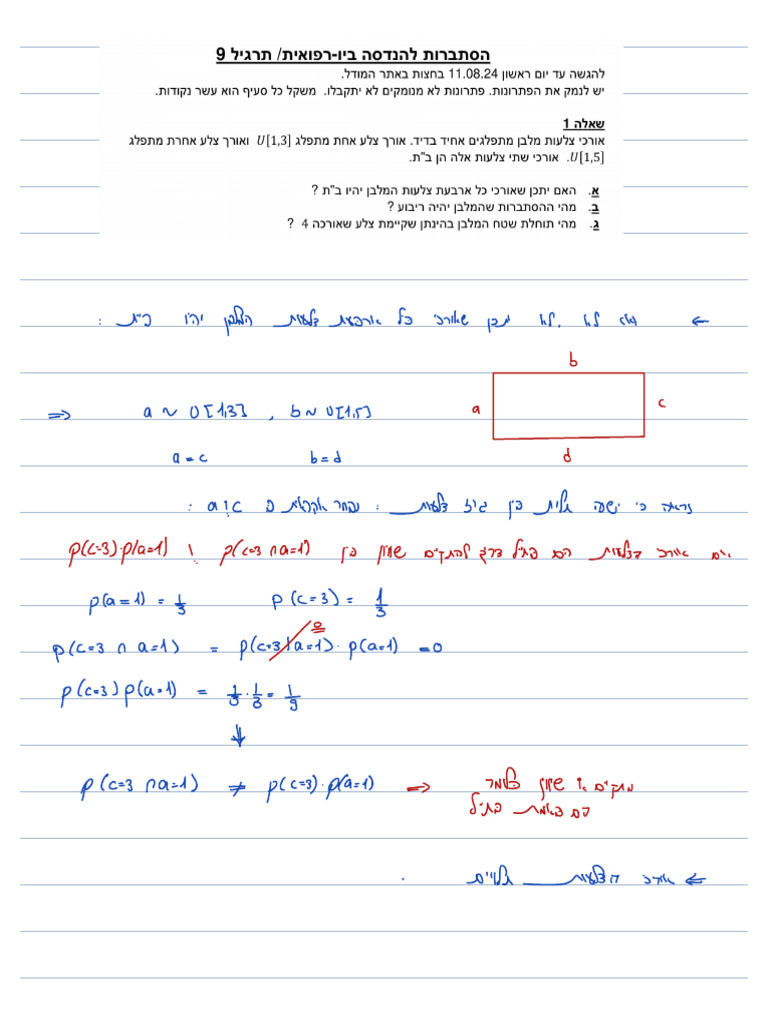 הסתברות להנדסה ביו-רפואית/ תרגיל 9
להגשה עד יום ראשון 11.08.24 בחצות באתר המודל.
יש לנמק את הפתרונות. פתרונות לא מנומקים לא יתקבלו. משקל כל סעיף הוא עשר נקודות.
שאלה 1
אורכי צלעות מלבן מתפלגים אחיד בדיד. אורך צלע אחת מתפלג U[1,3] ואורך צלע אחרת מתפלג
U[1,5]. אורכי שתי צלעות אלה הן ב"ת.
א. האם יתכן שאורכי כל ארבעת צלעות המלבן יהיו ב"ת ?
ב. מהי ההסתברות שהמלבן יהיה ריבוע ?
ג. מהי תוחלת שטח המלבן בהינתן שקיימת צלע שאורכה 4 ?
← לא, לא יתכן שאורכי כל ארבעת צלעות המלבן יהיו ב"ת :
b
⇒ a ~ U[1,3] , b ~ U[1,5] a c
a = c b = d d
נראה כי ישנה תלות בין צלעות : נבחר a וc :
אם אורכי הצלעות הם ב"ת צריך להתקיים שוויון בין p(c=3∩a=1) ו p(c=3)·p(a=1)
p(a=1) = 1/3 p(c=3) = 1/3
p(c=3 ∩ a=1) = p(c=3|a=1) · p(a=1) = 0
0
p(c=3)p(a=1) = 1/3 · 1/3 = 1/9
↓
p(c=3 ∩ a=1) ≠ p(c=3)·p(a=1) ⇒ שוויון כלומר
הם
← אורכי הצלעות תלויים .